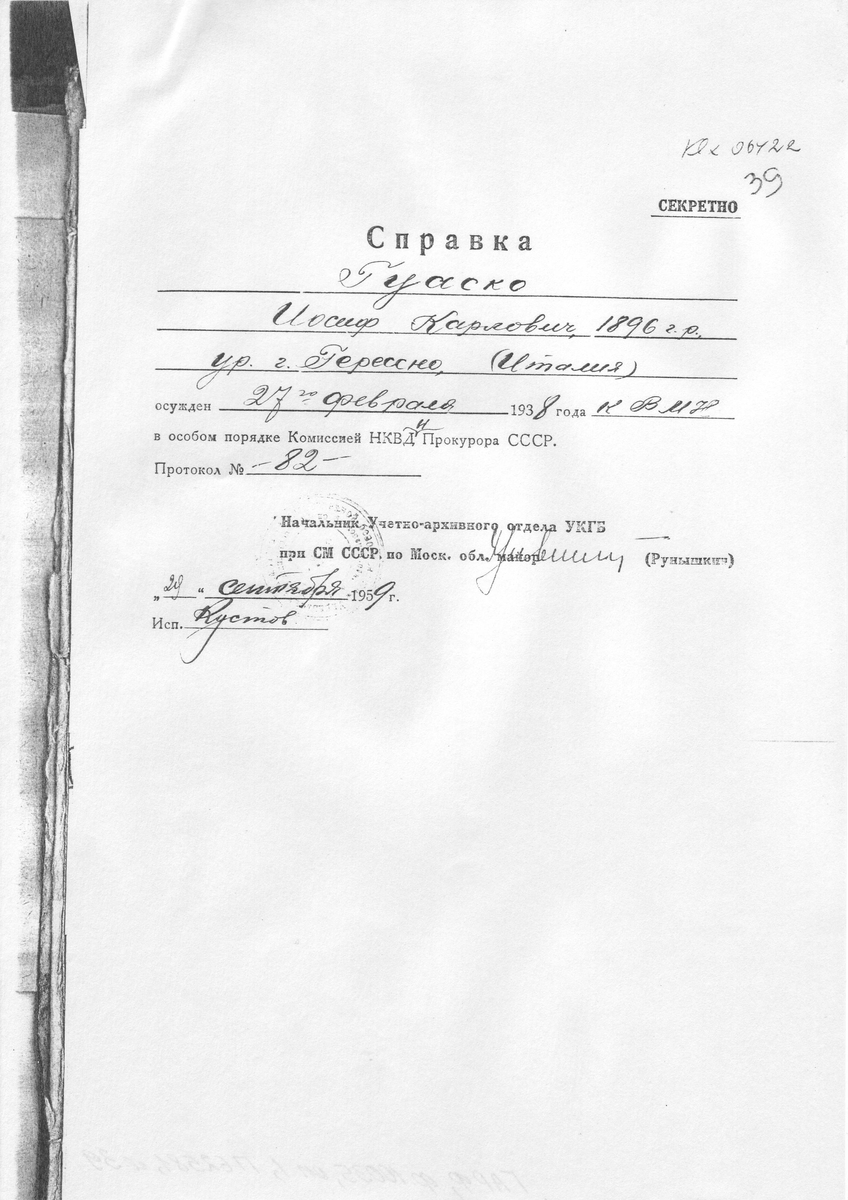 06422
39
СЕКРЕТНО
Справка
Гуаско
Иосиф Карлович, 1896 г.р.,
ур. г. Герессно, (Италия)
осужден 27го февраля 1938 года к ВМН
в особом порядке Комиссией НКВД и Прокурора СССР.
Протокол № -82-
Начальник Учетно-архивного отдела УКГБ
при СМ СССР по Моск. обл. майор (Рунышкин)
„29“ сентября 1959 г.
Исп. Кустов